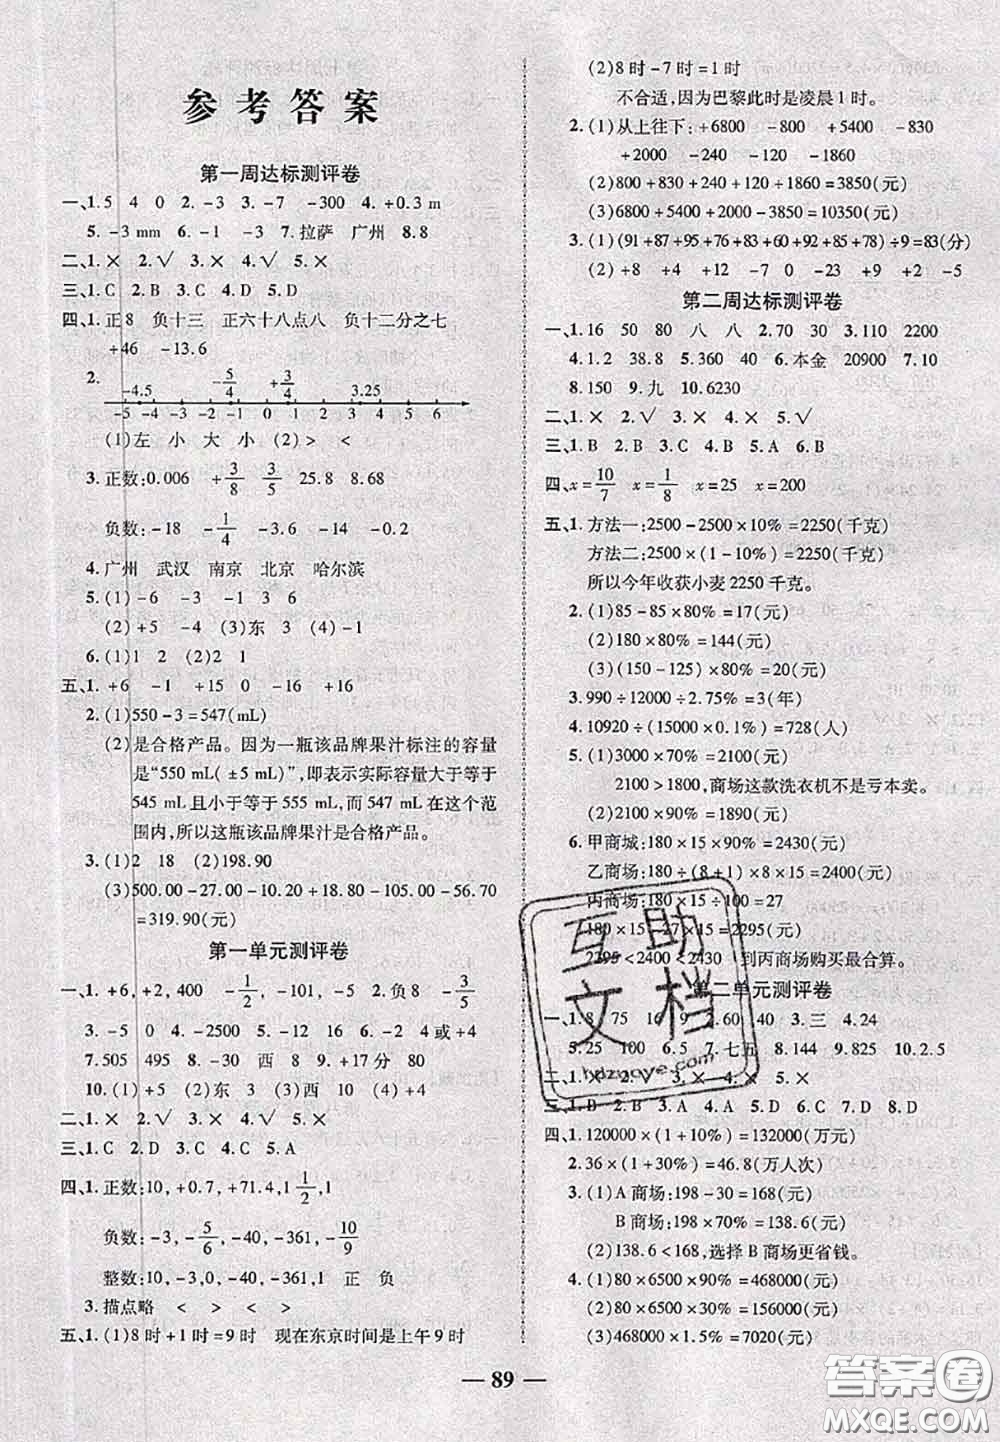 参考答案
第一周达标测评卷
一、1.5 4 0 2.-3 3.-7 -300 4.+0.3 m
5.-3 mm 6.-1 -3 7.拉萨 广州 8.8
二、1.× 2.√ 3.× 4.√ 5.×
三、1.C 2.B 3.C 4.D 5.D
四、1.正8 负十三 正六十八点八 负十二分之七
+46 -13.6
2. -4.5 -5/4 +3/4 3.25
-5 -4 -3 -2 -1 0 1 2 3 4 5 6
(1)左 小 大 小 (2)> <
3.正数:0.006 +3/8 3/5 25.8 8.68
负数:-18 -1/4 -3.6 -14 -100
4.广州 武汉 南京 北京 哈尔滨
5.(1)-6 -3 -1 3 6
(2)+5 -4 (3)东 3 (4)-1
6.(1)1 2 (2)2 1
五、1.+6 -1 +15 0 -16 +16
2.(1)550-3=547(mL)
(2)是合格产品。因为一瓶该品牌果汁标注的容量
是“550 mL(±5 mL)”,即表示实际容量大于等于
545 mL 且小于等于 555 mL,而 547 mL 在这个范
围内,所以这瓶该品牌果汁是合格产品。
3.(1)2 18 (2)198.90
(3)500.00-27.00-10.20+18.80-105.00-56.70
=319.90(元)
第一单元测评卷
一、1.+6,+2,400 -1/2,-101,-5 2.负8 -3/5
3.-5 0 4.-2500 5.-12 16 6.-2 4或+4
7.505 495 8.-30 西 8 9.+17分 80
10.(1)+5 (2)东 (3)西 (4)-8
二、1.× 2.√ 3.× 4.√ 5.×
三、1.C 2.D 3.C 4.C 5.A
四、1.正数:10,+0.7,+71.4,1 1/2,1
负数:-3,-5/6,-40,-361,-10/9
整数:10,-3,0,-40,-361,1 正 负
3.描点略 < > < >
五、1.(1)8时+1时=9时 现在东京时间是上午9时
(2)8时-7时=1时
不合适,因为巴黎此时是凌晨1时。
2.(1)从上往下:+6800 -800 +5400 -830
+2000 -240 -120 -1860
(2)800+830+240+120+1860=3850(元)
(3)6800+5400+2000-3850=10350(元)
3.(1)(91+87+95+76+83+60+92+85+78)÷9=83(分)
(2)+8 +4 +12 -7 0 -23 +9 +2 -5
第二周达标测评卷
一、1.16 50 80 八 八 2.70 30 3.110 2200
4.1.2 38.8 5.360 40 6.本金 20900 7.10
8.150 9.九 10.6230
二、1.× 2.√ 3.× 4.√ 5.√
三、1.B 2.B 3.C 4.B 5.A 6.B
四、x=10/7 x=1/8 x=25 x=200
五、1.方法一:2500-2500×10%=2250(千克)
方法二:2500×(1-10%)=2250(千克)
所以今年收获小麦2250千克。
2.(1)85-85×80%=17(元)
(2)180×80%=144(元)
(3)(150-125)×80%=20(元)
3.990÷12000÷2.75%=3(年)
4.10920÷(15000×0.1%)=728(人)
5.(1)3000×70%=2100(元)
2100>1800,商场这款洗衣机不是亏本卖。
(2)2100×90%=1890(元)
6.甲商城:180×15×90%=2430(元)
乙商场:180÷(8+1)×8×15=2400(元)
丙商场:180×15÷100=27
180×15-27×15=2295(元)
2295<2400<2430 到丙商场购买最合算。
第二单元测评卷
一、1.8 75 16 9 2.60 40 3.三 4.24
5.25 100 6.5 7.七五 8.144 9.825 10.2.5
二、1.× 2.√ 3.× 4.× 5.×
三、1.D 2.B 3.A 4.A 5.D 6.B 7.D 8.D
四、1.120000×(1+10%)=132000(万元)
2.36×(1+30%)=46.8(万人次)
3.(1)A商场:198-30=168(元)
B商场:198×70%=138.6(元)
(2)138.6<168,选择B商场更省钱。
4.(1)80×6500×90%=468000(元)
(2)80×6500×30%=156000(元)
(3)468000×1.5%=7020(元)
互助
文档
hdzuoye.com
— 89 —
答案圈
MXQE.COM